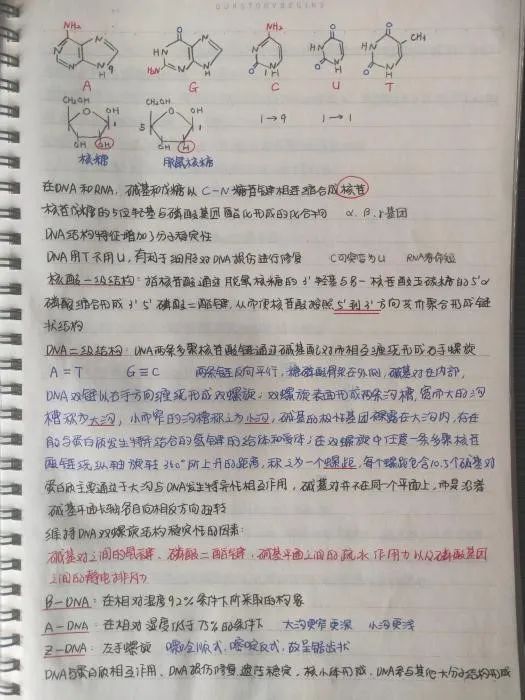 OURSTORYBEGINS
NH₂ O NH₂ O O CH₃
N N N N HN N N HN HN
N N H 9 H₂N N N H O N H 1 O N H O N H
A G C U T
CH₂OH OH CH₂OH OH
O 1 5 O 1 1→9 1→1
OH OH OH H
核糖 脱氧核糖
在DNA和RNA,碱基和戊糖以C-N糖苷键相连缩合成核苷
核苷戊糖的5位羟基与磷酸基团酯化形成的化合物 α.β.γ基团
DNA结构特征增加了分子稳定性
DNA用T不用U,有利于细胞对DNA损伤进行修复 C可变为U RNA寿命短
核酸一级结构:指核苷酸通过脱氧核糖的3'羟基与另一核苷酸戊碳糖的5'α
磷酸缩合形成3'5'磷酸二酯键,从而使核苷酸按照5'到3'方向共价聚合形成链
状结构
DNA二级结构:DNA两条多聚核苷酸链通过碱基配对而相互缠绕形成右手螺旋
A=T G≡C 两条链反向平行,糖磷酸骨架在外侧,碱基对在内部,
DNA双链以右手方向缠绕形成双螺旋;双螺旋表面形成两条沟槽,宽而大的沟
槽称为大沟,小而窄的沟槽称之为小沟,碱基的极性基团裸露在大沟内,存在
能与蛋白质发生特异结合的氢键的给体和受体;在双螺旋中任意一条多聚核苷
酸链绕纵轴旋转360°所上升的距离,称之为一个螺距,每个螺距包含10.5个碱基对
蛋白质主要通过于大沟与DNA发生特异性相互作用,碱基对并不在同一个平面上,而是沿着
碱基平面长轴各自向相反方向扭转
维持DNA双螺旋结构稳定性的因素:
碱基对之间的氢键、磷酸二酯键、碱基平面之间的疏水作用力以及磷酸基团
之间的静电排斥力
B-DNA:在相对湿度92%条件下所采取的构象
A-DNA:在相对湿度低于75%的条件下 大沟更窄更深 小沟更浅
Z-DNA:左手螺旋 嘌呤顺式,嘧啶反式,故呈锯齿状
DNA与蛋白质相互作用、DNA损伤修复、遗传稳定,核小体形成,DNA参与其他大分子结构形成